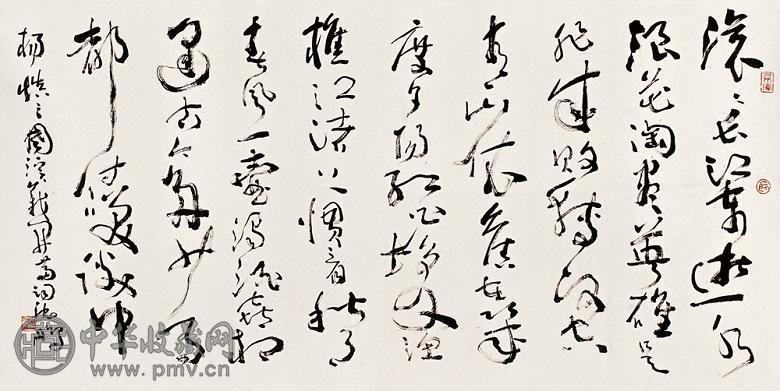 滚滚长江东逝水
浪花淘尽英雄是
非成败转头空
青山依旧在几
度夕阳红白发渔
樵江渚上惯看秋月
春风一壶浊酒喜相
逢古今多少事
都付笑谈中
杨慎三国演义开篇词沈鹏
中华收藏网
www.pmv.cn